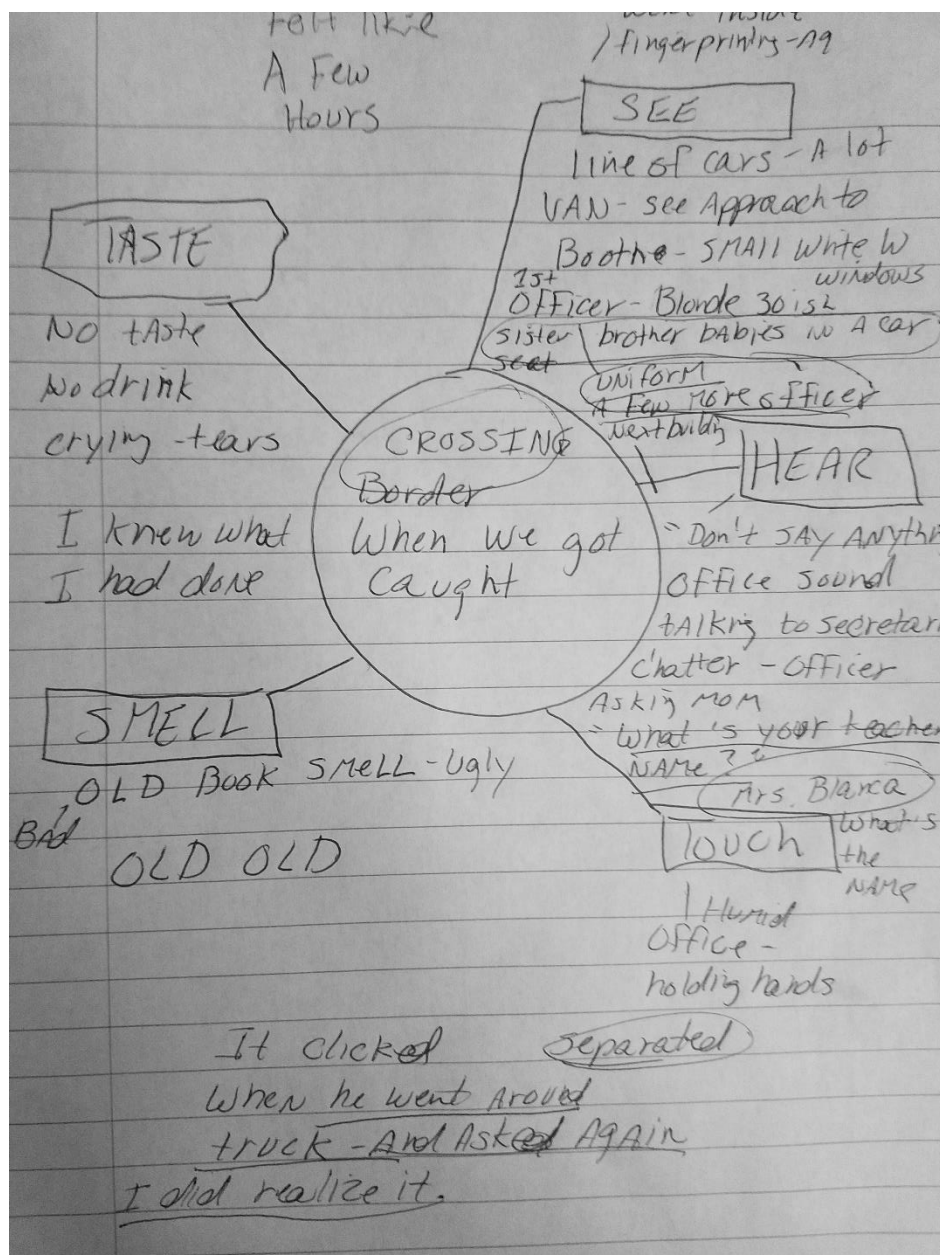 felt like
A Few
Hours
went inside
/ fingerprinting - Ag
SEE
line of cars - A lot
VAN - see Approach to
Booth - SMALL White W
windows
1st
Officer - Blonde 30 ish
sister brother babies no A car
seat
UNiform
A Few More officer
Next buildg
TASTE
No tAste
No drink
crying - tears
I knew what
I had done
CROSSING
Border
When we got
Caught
HEAR
"Don't SAY ANythi
Office sound
tAlking to secretar
Chatter - Officer
Asking MOM
"What's your teacher
NAME?"
Mrs. Blanca
What's
the
NAMe
SMELL
OLD Book SMeLL - Ugly
BAd
OLD OLD
Touch
Humid
Office -
holding hands
It clicked separated
When he went Around
truck - And Asked AgAin
I did realize it.